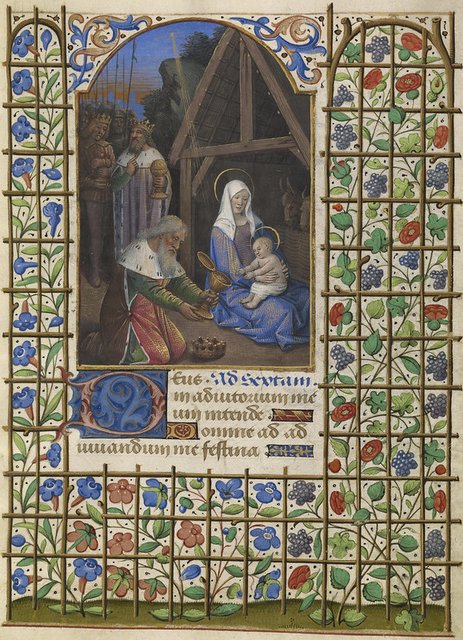 Deus . Ad Sextam .
in adiutorium me
um intende .
Domine ad ad
iuuandum me festina